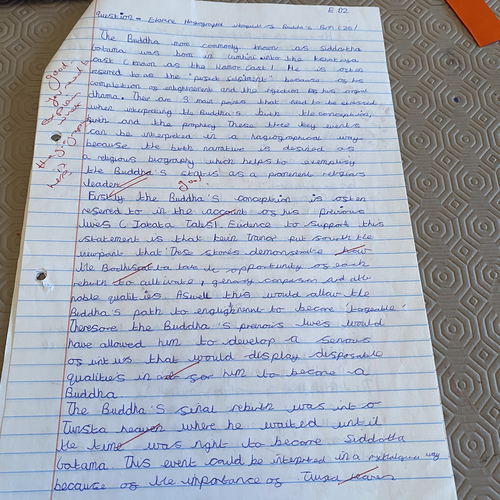 E 02
Question - Examine Hagiographical interpretations of Buddha's Birth (20)
The Buddha more commonly known as Siddatta
Gotama was born in Lumbini into the Kshatriya
cast (known as the warrior cast). He is often
referred to as the "perfect sufficient" because of his
completion of enlightenment and the rejection of his original
dharma. There are 3 main points that need to be stressed
when interpreting the Buddha's birth the conception,
birth and the prophecy. These three key events
can be interpreted in a hagiographical way
because the birth narrative is desired as
a religious biography which helps to exemplify
the Buddha's status as a prominent religious
leader.
good
Firstly the Buddha's conception is often
referred to in the account of his previous
lives (Jataka Tales) Evidence to support this
statement is that Kevin Trainor put fourth the
viewpoint that These stories demonstrate how
the Bodhisatta take the opportunity of each
rebirth to cultivate, generosity compassion and other
noble qualities. Aswell this would allow the
Buddha's path to enlightenment to become
Therefore the Buddha's previous lives would
have allowed him to develop a serious
of virtues that would display disposable
qualities in for him to become a
Buddha
The Buddha's final rebirth was into a
Tursita heaven where he waited until
the time was right to become Siddatta
Gotama. This event could be interpreted in a mythological way
because of the importance of Tusita heaven
good
need to
explain
hagiography
here